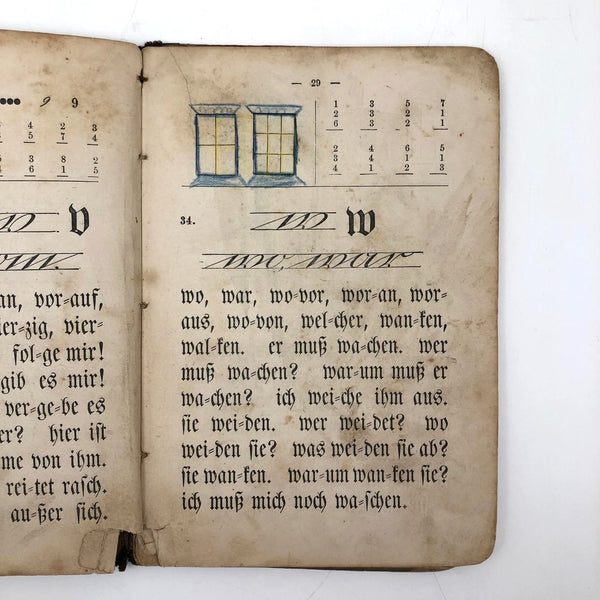 ••• 9 9
4 4 2 3
5 5 7 4
5 3 8 2
4 6 1 5
v V
om.
an, vor⸗auf,
ier⸗zig, vier⸗
fol⸗ge mir!
gib es mir!
ver⸗ge⸗be es
er? hier iſt
me von ihm.
rei⸗tet raſch.
au⸗ßer ſich.
— 29 —
1 3 5 7
2 3 2 1
6 3 2 1
2 4 6 5
3 4 1 1
4 1 2 3
34. w W
wo, war
wo, war, wo⸗vor, wor⸗an, wor⸗
aus, wo⸗von, wel⸗cher, wan⸗ken,
wal⸗ken. er muß wa⸗chen. wer
muß wa⸗chen? war⸗um muß er
wa⸗chen? ich wei⸗che ihm aus.
ſie wei⸗den. wer wei⸗det? wo
wei⸗den ſie? was wei⸗den ſie ab?
ſie wan⸗ken. war⸗um wan⸗ken ſie?
ich muß mich noch wa⸗ſchen.